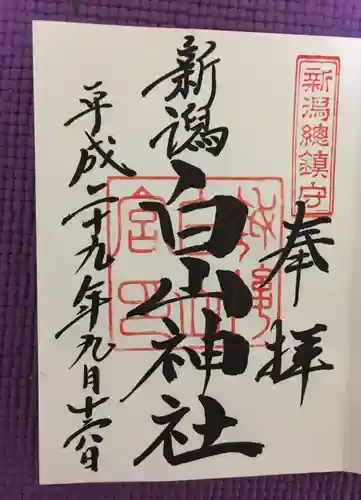 新潟總鎮守
奉拝
新潟
白山神社
平成二十九年九月十六日